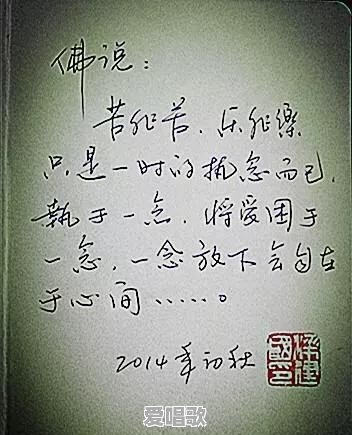 佛说：
苦非苦、乐非樂
只是一时的执念而已.
執于一念，将爱困于
一念，一念放下会自在
于心间……。
2014年初秋
爱唱歌